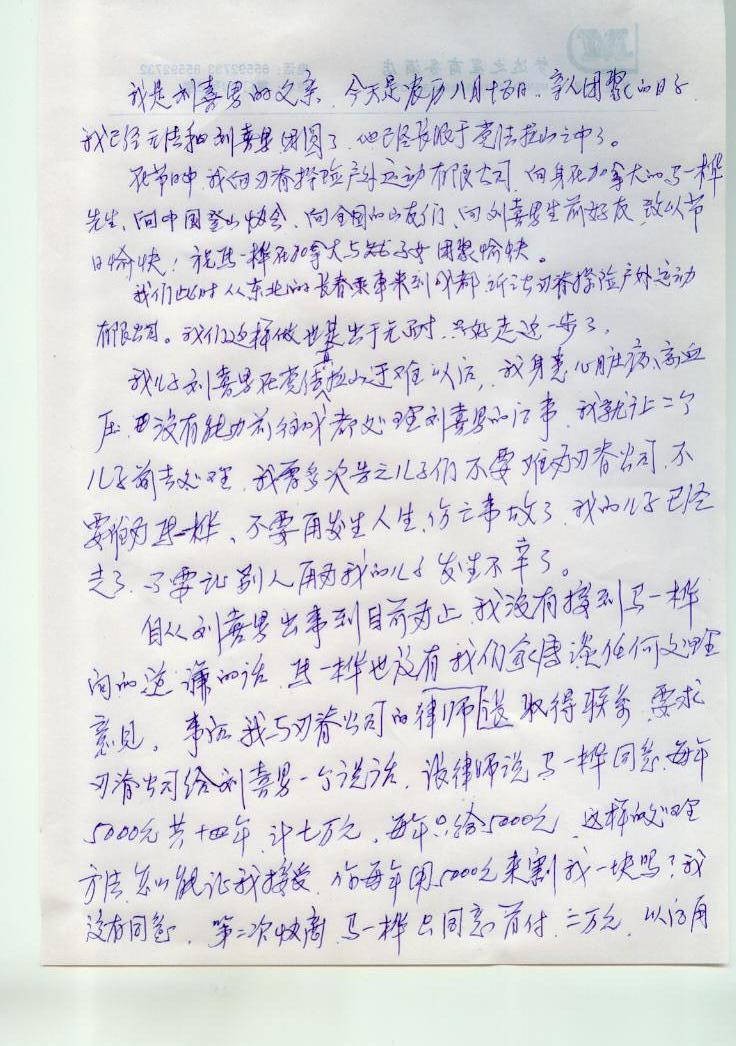 我是刘喜男的父亲，今天是农历八月十五日，亲人团聚的日子
我已经无法和刘喜男团圆了，他已经长眠于党结拉山之中了。
在节日中，我向刃脊探险户外运动有限公司，向身在加拿大的马一桦
先生，向中国登山协会，向全国的山友们，向刘喜男生前好友，致以节
日愉快！祝马一桦在加拿大与妻子女团聚愉快。
我们此时从东北的长春乘车来到成都 诉讼刃脊探险户外运动
有限公司。我们这样做也是出于无奈，只好走这一步了。
我儿子刘喜男在党结真拉山遇难以后，我身患心脏病、高血
压，没有能力前往成都处理刘喜男的后事，我就让二个
儿子前去处理，我曾多次告之儿子们不要难为刃脊公司，不
要难为马一桦，不要再发生人生伤亡事故了，我的儿子已经
走了，不要让别人再为我的儿子发生不幸了。
自从刘喜男出事到目前为止，我没有接到马一桦
向的道谦的话，马一桦也没有我们家属谈任何处理
意见。事后我与刃脊公司的律师 取得联系，要求
刃脊公司给刘喜男一个说法，该律师说马一桦同意每年
5000元共十四年，计七万元，每年只给5000元，这样的处理
方法怎么能让我接受，你每年用5000元来割我一块吗？我
没有同意。第二次协商，马一桦只同意首付二万元，以后再